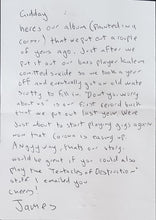 Gidday
heres our album (Painted in a
corner) that we put out a couple
of years ago. Just after we
put it out our bass player
committed suicide so we took a year
off and eventually got an old mate
Scotty to fill in. "Dont worry
about us" is our first record back
that we put out last year. Were
Just about to start playing gigs again
now that corona is easing up.
Anyway thats our story.
Would be great if you could also
play the "Tentacles of Destruction"
I emailed you
cheers!
James